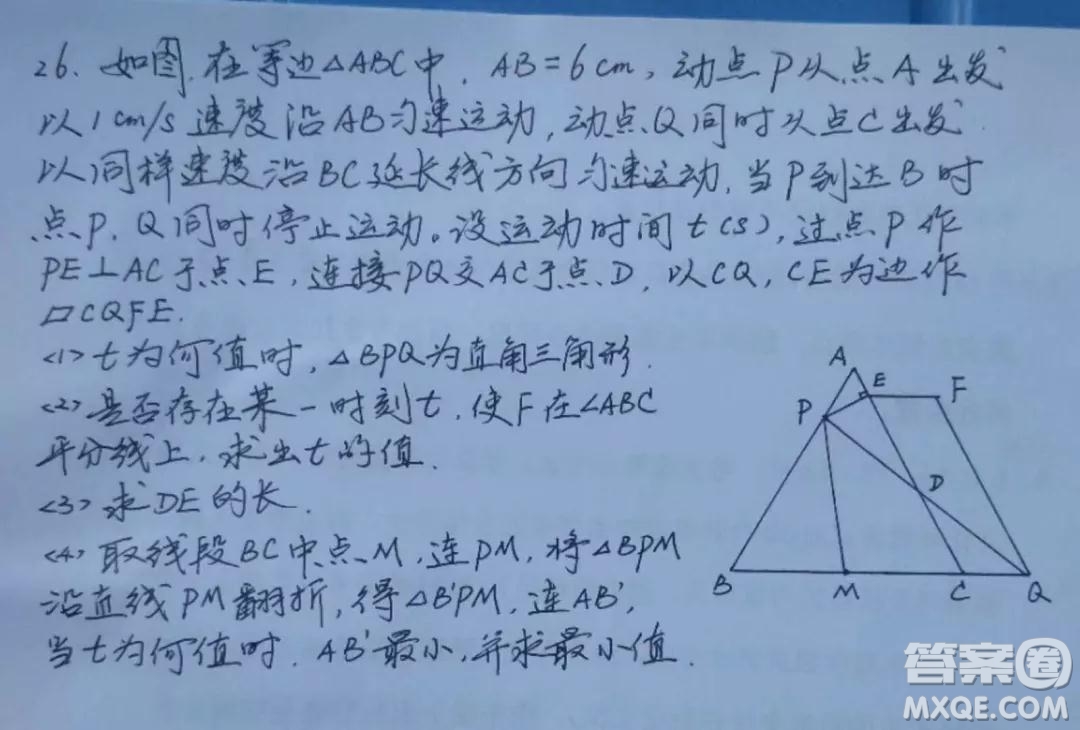 26. 如图, 在等边△ABC中, AB=6cm, 动点P从点A出发
以1cm/s 速度沿AB匀速运动, 动点Q同时从点C出发
以同样速度沿BC延长线方向匀速运动, 当P到达B时
点P, Q同时停止运动。设运动时间t(s), 过点P作
PE⊥AC于点E, 连接PQ交AC于点D, 以CQ, CE为边作
▱CQFE.
<1> t为何值时, △BPQ为直角三角形.
<2> 是否存在某一时刻t, 使F在∠ABC
平分线上, 求出t的值.
<3> 求DE的长.
<4> 取线段BC中点M, 连PM, 将△BPM
沿直线PM翻折, 得△B'PM, 连AB',
当t为何值时, AB'最小, 并求最小值.
A
E
F
P
D
B
M
C
Q
答案圈
MXQE.COM